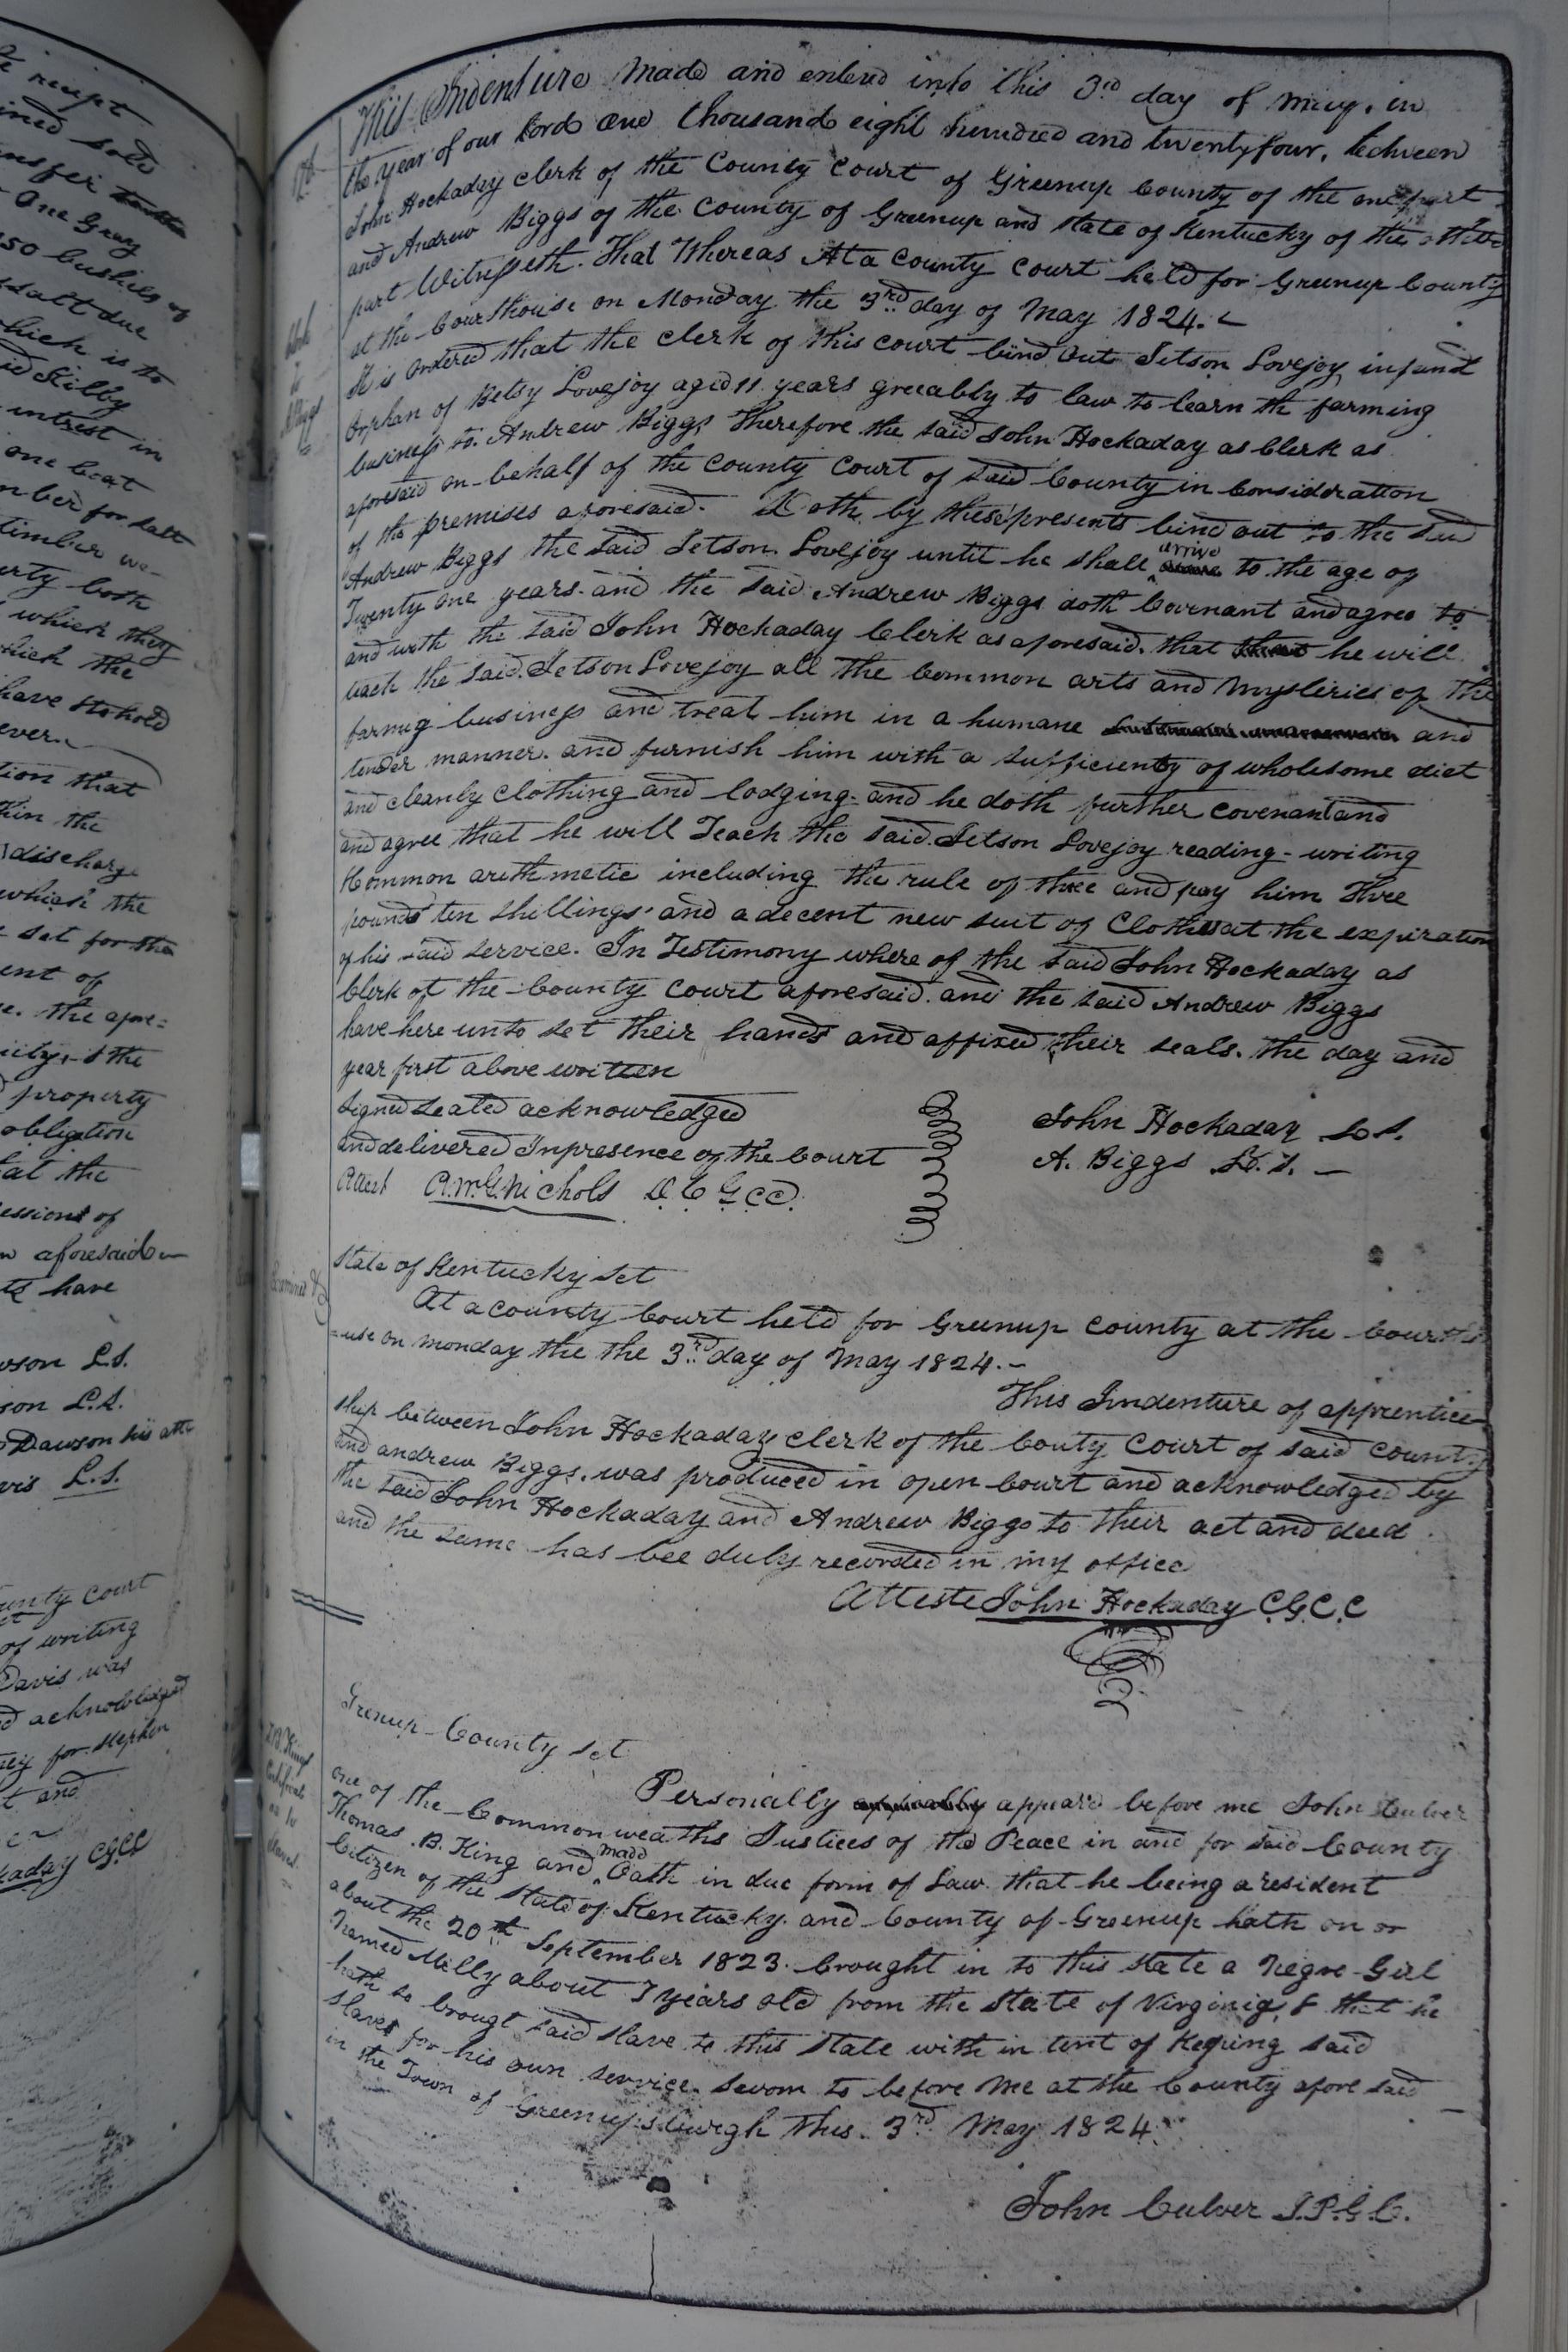 e receipt
ined sold
ansfer
One Gray
350 bushels of
salt due
which is to
id Kilby
intrest in
one boat
mber for salt
timber we-
erty both
which they
which the
have & to hold
ever.
tion that
thin the
discharge
which the
e set for the
ent of
e. the afore=
city, & the
d property
obligation
that the
essions of
w aforesaid
ts have
wson L.S.
son L.S.
Dawson his att
vis L.S.
ounty court
of writing
Davis was
d acknowledged
ey for Stephen
t and
kaday CGCC
This Indenture Made and entered into this 3rd day of May, in
the year of our Lord One thousand eight hundred and twentyfour, between
John Hockaday clerk of the County Court of Greenup County of the one part
and Andrew Biggs of the County of Greenup and State of Kentucky of the other
part Witnesseth. That Whereas At a County Court held for Greenup County
at the Courthouse on Monday the 3rd day of May 1824. -
It is Ordered that the clerk of this court bind out Jetson Lovejoy infant
Orphan of Betsy Lovejoy aged 11 years greeably to law to learn th farming
business to Andrew Biggs Therefore the said John Hockaday as Clerk as
aforesaid on behalf of the County Court of said County in Consideration
of the premises aforesaid. Doth by these presents bind out to the said
Andrew Biggs the said Jetson Lovejoy until he shall arrive to the age of
Twenty One years. and the said Andrew Biggs doth Covenant and agree to
and with the said John Hockaday Clerk as aforesaid. that he will
teach the said Jetson Lovejoy all the Common arts and Mysteries of the
farmig business and treat him in a humane and
tender manner. and furnish him with a sufficienty of wholesome diet
and cleanly clothing and lodging. and he doth further covenant and
and agree that he will Teach the said Jetson Lovejoy reading - writing
Common arithmetic including the rule of three and pay him Three
pounds ten shillings and a decent new suit of Clothes at the expiration
of his said service. In Testimony where of the said John Hockaday as
Clerk of the County Court aforesaid. and the said Andrew Biggs
have here unto set their hands and affixed their seals. the day and
year first above written
Signed Sealed acknowledged
and delivered Inpresence of the Court
Attest A.McG.Nichols D.C.G.CC.
John Hockaday L.S.
A. Biggs L.S. -
State of Kentucky Set
At a county Court held for Greenup County at the Courtho
=use on Monday the the 3rd day of May 1824. -
This Indenture of apprentice
ship between John Hockaday clerk of the Couty Court of said County
and andrew Biggs. was produced in open Court and acknowledged by
the said John Hockaday and Andrew Biggs to their act and deed
and the same has bee duly recorded in my office
Atteste John Hockaday C.G.C.C
Greenup County Set
Personally appeard before me John Culver
one of the Commonweaths Justices of the Peace in and for said County
Thomas .B. King and made Oath in due form of Law that he being a resident
Citizen of the State of Kentucky and County of Greenup hath on or
about the 20th September 1823. brought in to this State a Negro Girl
Named Milly about 7 years old from the State of Virginia, & that he
hath so brougt said slave to this State with in tent of Keping said
slave for his own service. Sworn to before me at the County afore said
in the Town of Greenupsburgh this. 3rd May 1824.
John Culver J.P.G.C.